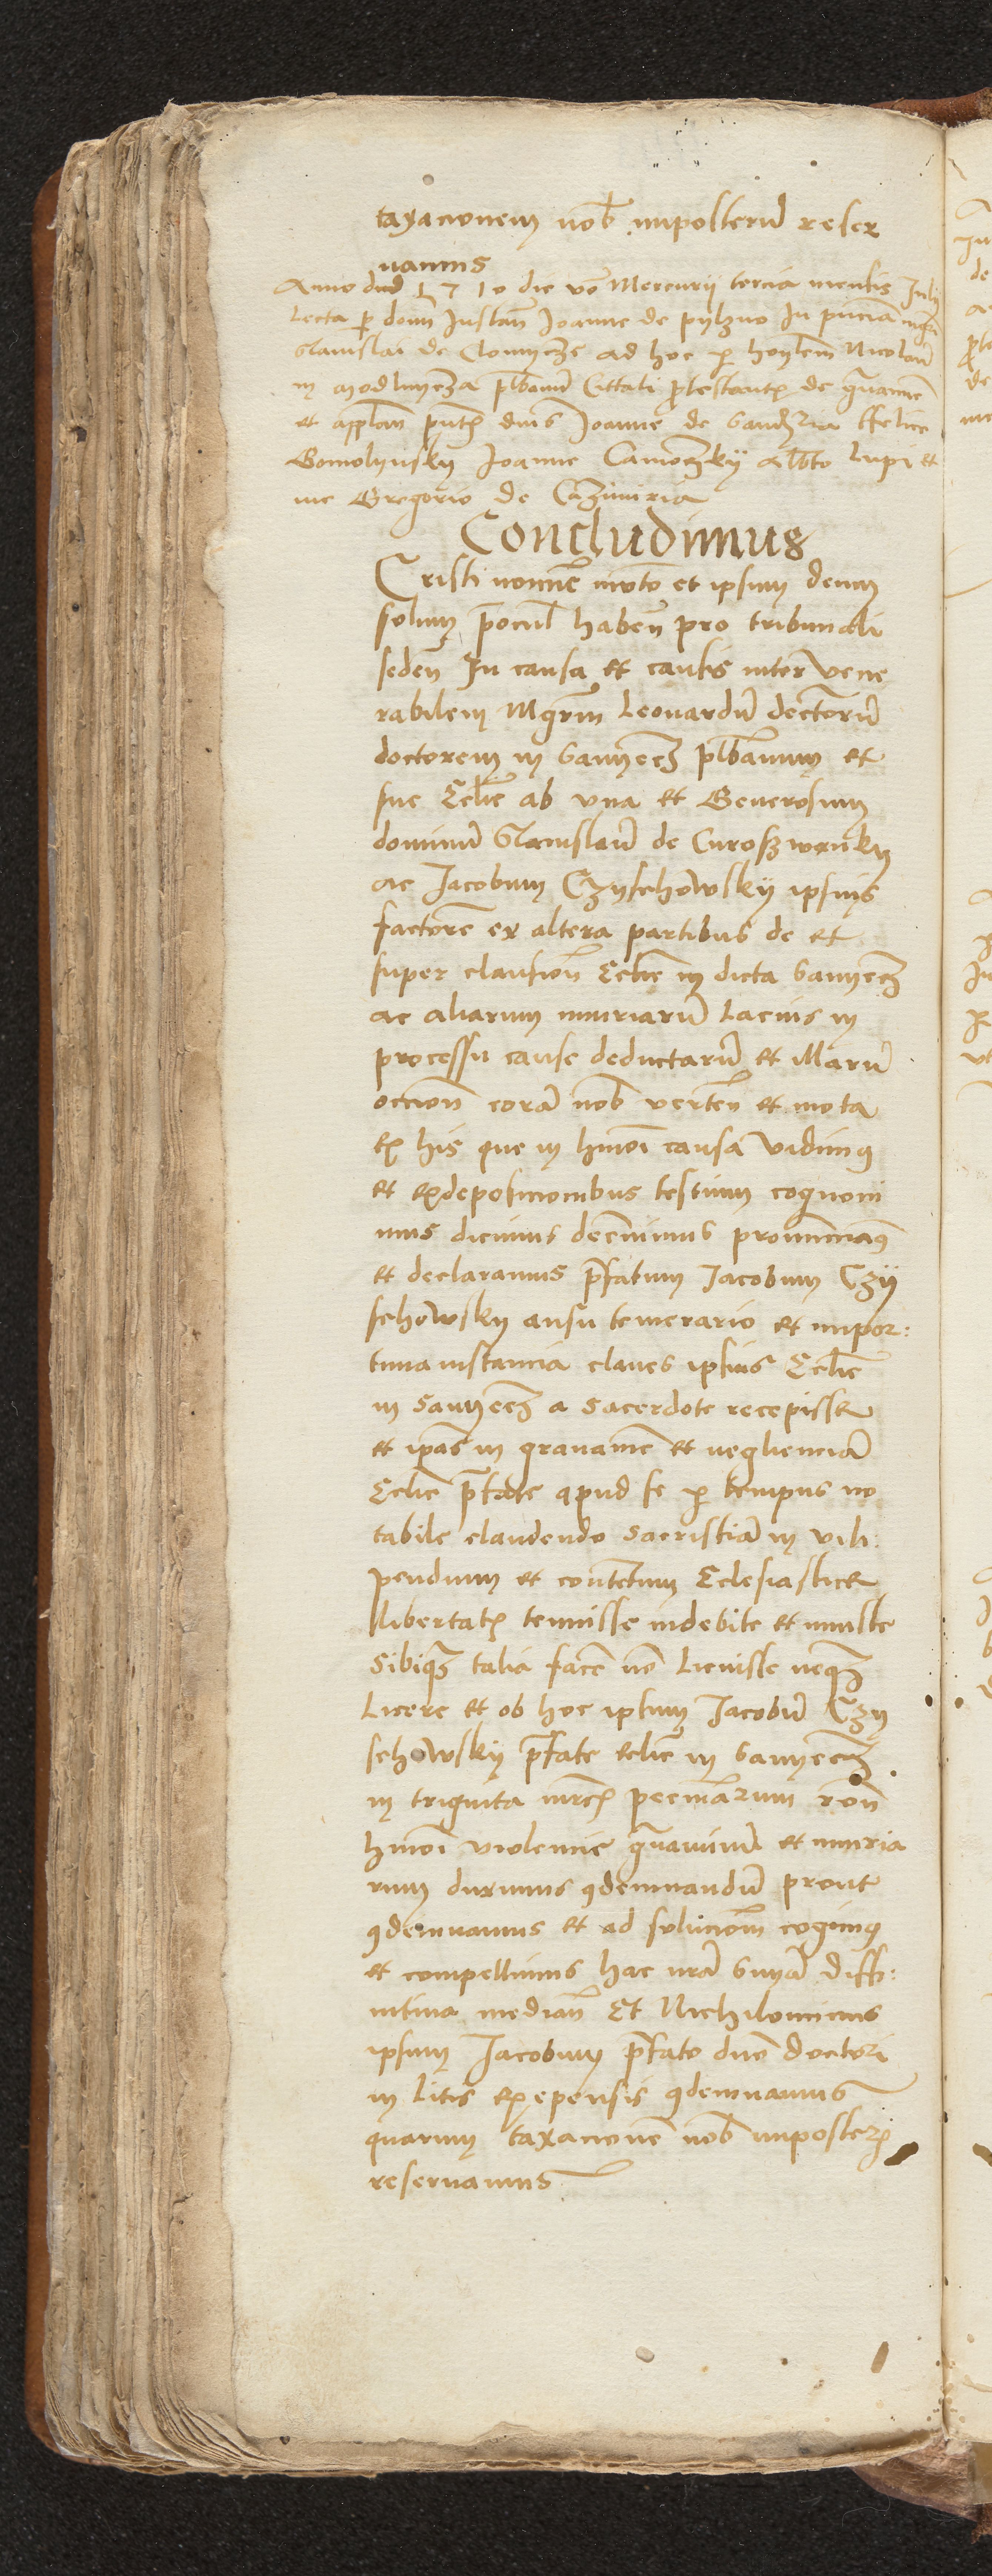 taxacionem nob imposterum reser
uamus
Anno dnd 1510 die vo Mercurij tercia mensis Julij
Lecta p domi Instan Joanne de pylzno In pncia mgri
Stanislai de ad hoc p honlem Nicolau
in modlnycza plbanu Cittati protestante de grauamie
et applan pntb dnis Joanne de Sandzria ffelice
Gomolynsky Joanne Camoczkij Albto Lupi et
me Gregorio de Cazimiria
Concludimus
Cristi nomie inuoto et ipsum deum
solum preocul haben pro tribunali
seden In causa et causis inter Vene
rabilem Mgrm Leonardu dectorum
doctorem in Gamyecz plbanum et
sue Eclie ab vna et Generosum
dominu Stanislau de Curoszwanky
ac Jacobum Czyschowskij ipsius
factore ex altera partibus de et
super clausion Eclie in dicta Gamyecz
ac aliarum iniuriaru Lacius in
processu cause deductaru et illaru
occion cora nob verten et mota
Ex his que in hmoi causa vidimus
et exdeposicionibus testium cognoui
mus dicimus decernimus pronunciamus
et declaramus prefatum Jacobum Czy
schowsky ausu temerario et impor:
tuna instancia claues ipsius Eclie
in Samyecz a Sacerdote recepisse
et ipas in grauame et negliencia
Eclie prefate apud se p tempus no
tabile claudendo Sacristia in vili
pendium et contetum Eclesiastice
libertatis tenuisse indebite et iniuste
Sibique talia face no Licuisse neque
Licere et ob hoc iptum Jacobu Czy
schowskij prefate eclie in Gamyecz
in triginta mrcis pecuniarum ron
hmoi violencie grauaminu et iniuria
rum duximus condemnandu prout
condemnamus et ad solucion cogimus
et compellimus hac nra Snya diffi:
nitiua median Et Nichilominus
ipsum Jacobum prefato dno doctori
in litis expensis condemnamus
quarum taxacione nob imposterum
reseruamus